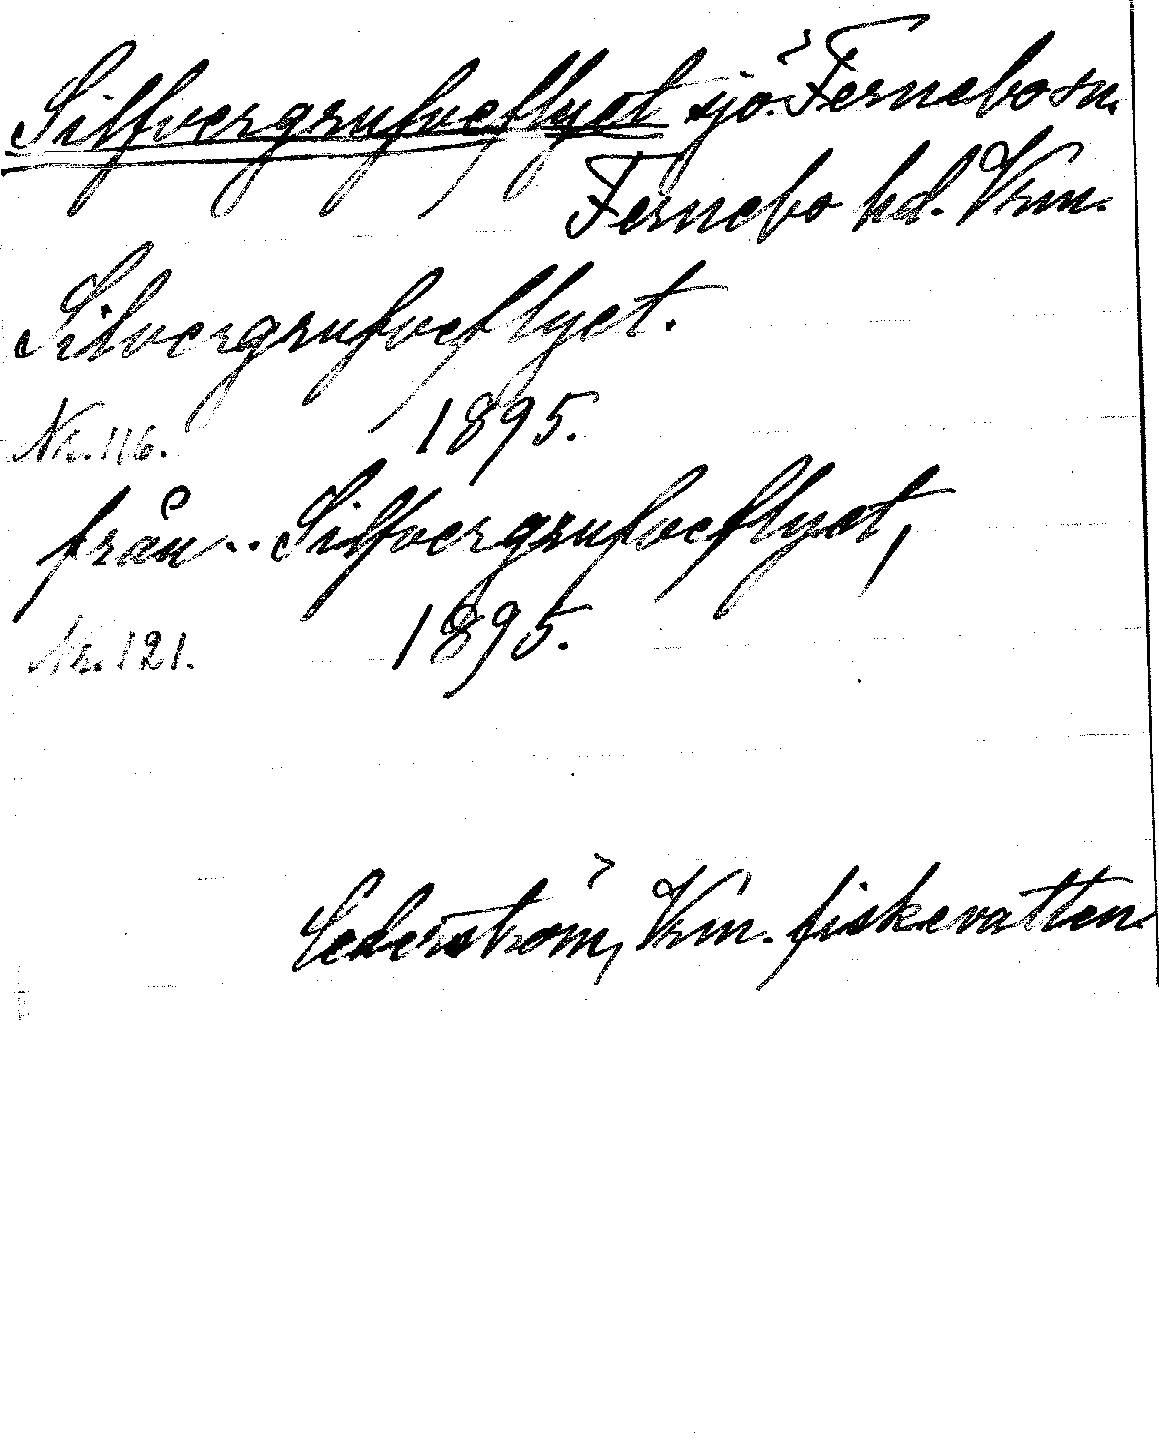 Silfvergrufveflyet sjö. Fernebo sn.
Fernebo hd. Vrm.
Silvergrufveflyet.
Nr. 116. 1895.
från .. Silfvergrufveflyet,
Nr. 121. 1895.
Cederström, Vrm. fiskevatten.